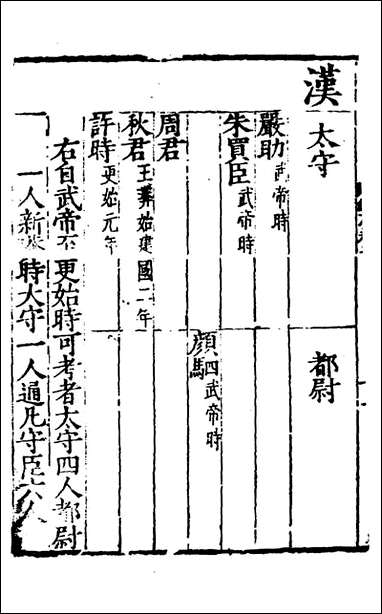 漢
太守 都尉
嚴助武帝時
朱買臣武帝時
顏駟武帝時
周君
秋君王莽始建國二年
許時更始元年
右自武帝至更始時可考者太守四人都尉
一人新莽時大守一人通凡守臣六人